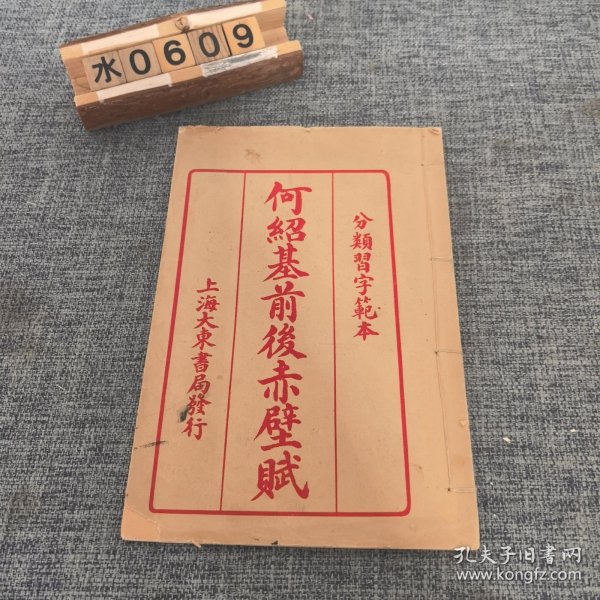 水0609
分類習字範本
何紹基前後赤壁賦
上海大東書局發行
孔夫子旧書网
www.kongfz.com